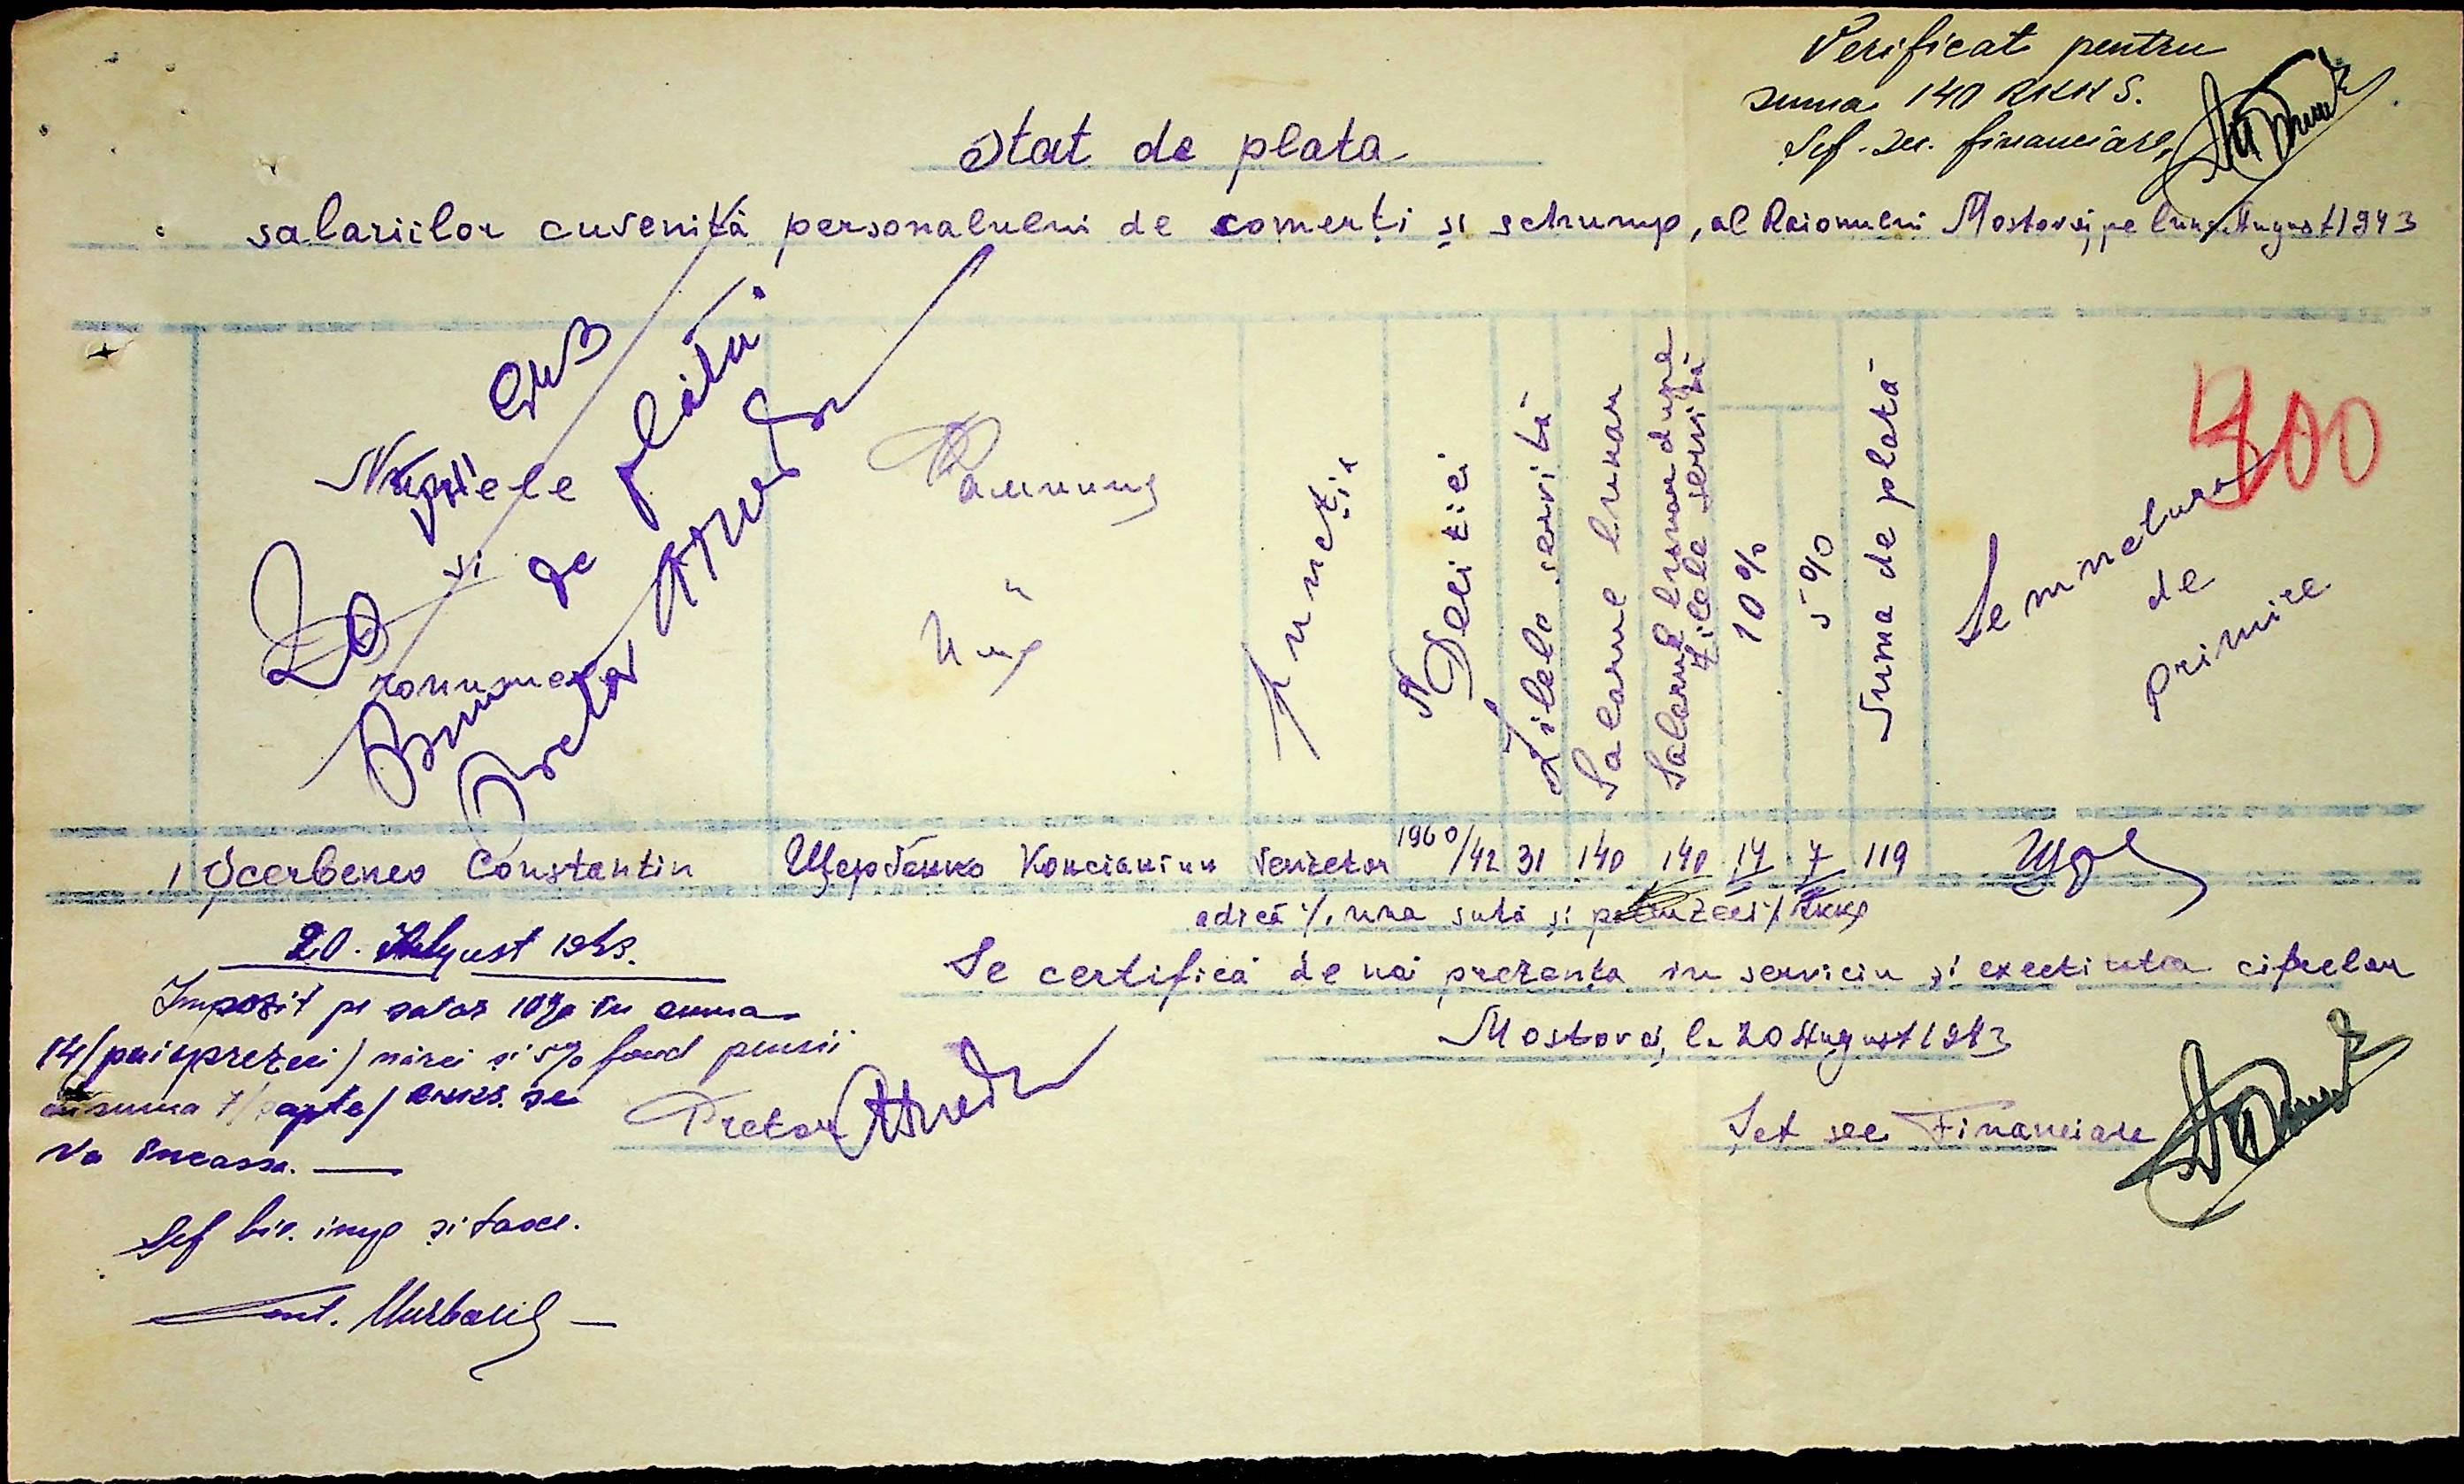 Verificat pentru
suma 140 RKKS.
Sef. sec. financiare,
Stat de plata
salariilor cuvenită personalului de comerți și schump, al Raionului Mostovoi, pe luna August 1943
400
Numele
și
pronumele
Bun de plătit
Pretor
Фамилия
и
Имя
Funcția
N Deciziei
Zilele servită
Salariul lunar
Salariul lunar după
zilele servită
10%
5%
Suma de plată
Semnetura
de
primire
1 Scerbenco Constantin Щербенко Константин Venzetor 1960/42 31 140 140 14 7 119
adică %, una sută și patruzeci % RKKS
20. August 1943.
Impozit pe salar 10% în suma
14 (paisprezeci) mărci și 5% fond pensii
în suma 7 (șapte) RKKS. se
va încassa.
Sef bir. imp și taxe.
Se certifică de noi prezența in serviciu și exectitutea cifrelor
Mostovoi, l. 20 August 1943
Pretor
Șef sec Financiare